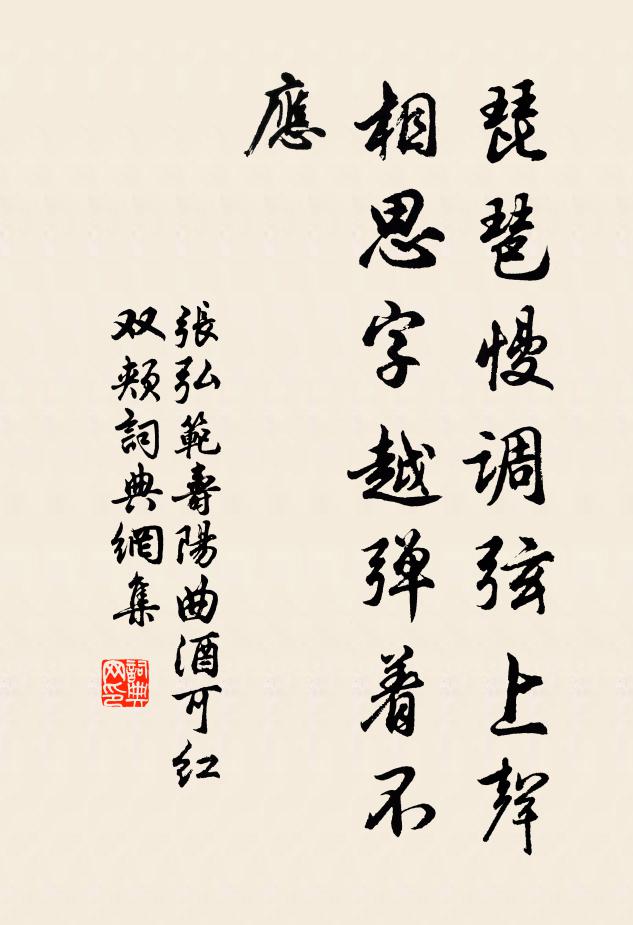 琵琶慢调弦上聲
相思字越弹着不
應
張弘範壽陽曲酒可红
双頰詞典網集
詞典
网印